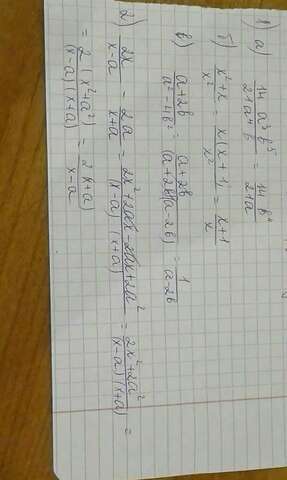 1) а) 14a³b⁵ / 21a⁴b = 14b⁴ / 21a
б) x²+x / x² = x(x+1) / x² = x+1 / x
в) a+2b / a²-4b² = a+2b / (a+2b)(a-2b) = 1 / a-2b
2) 2x / x-a - 2a / x+a = 2x²+2ax-2ax+2a² / (x-a)(x+a) = 2x²+2a² / (x-a)(x+a) =
= 2(x²+a²) / (x-a)(x+a) = 2(x+a) / x-a